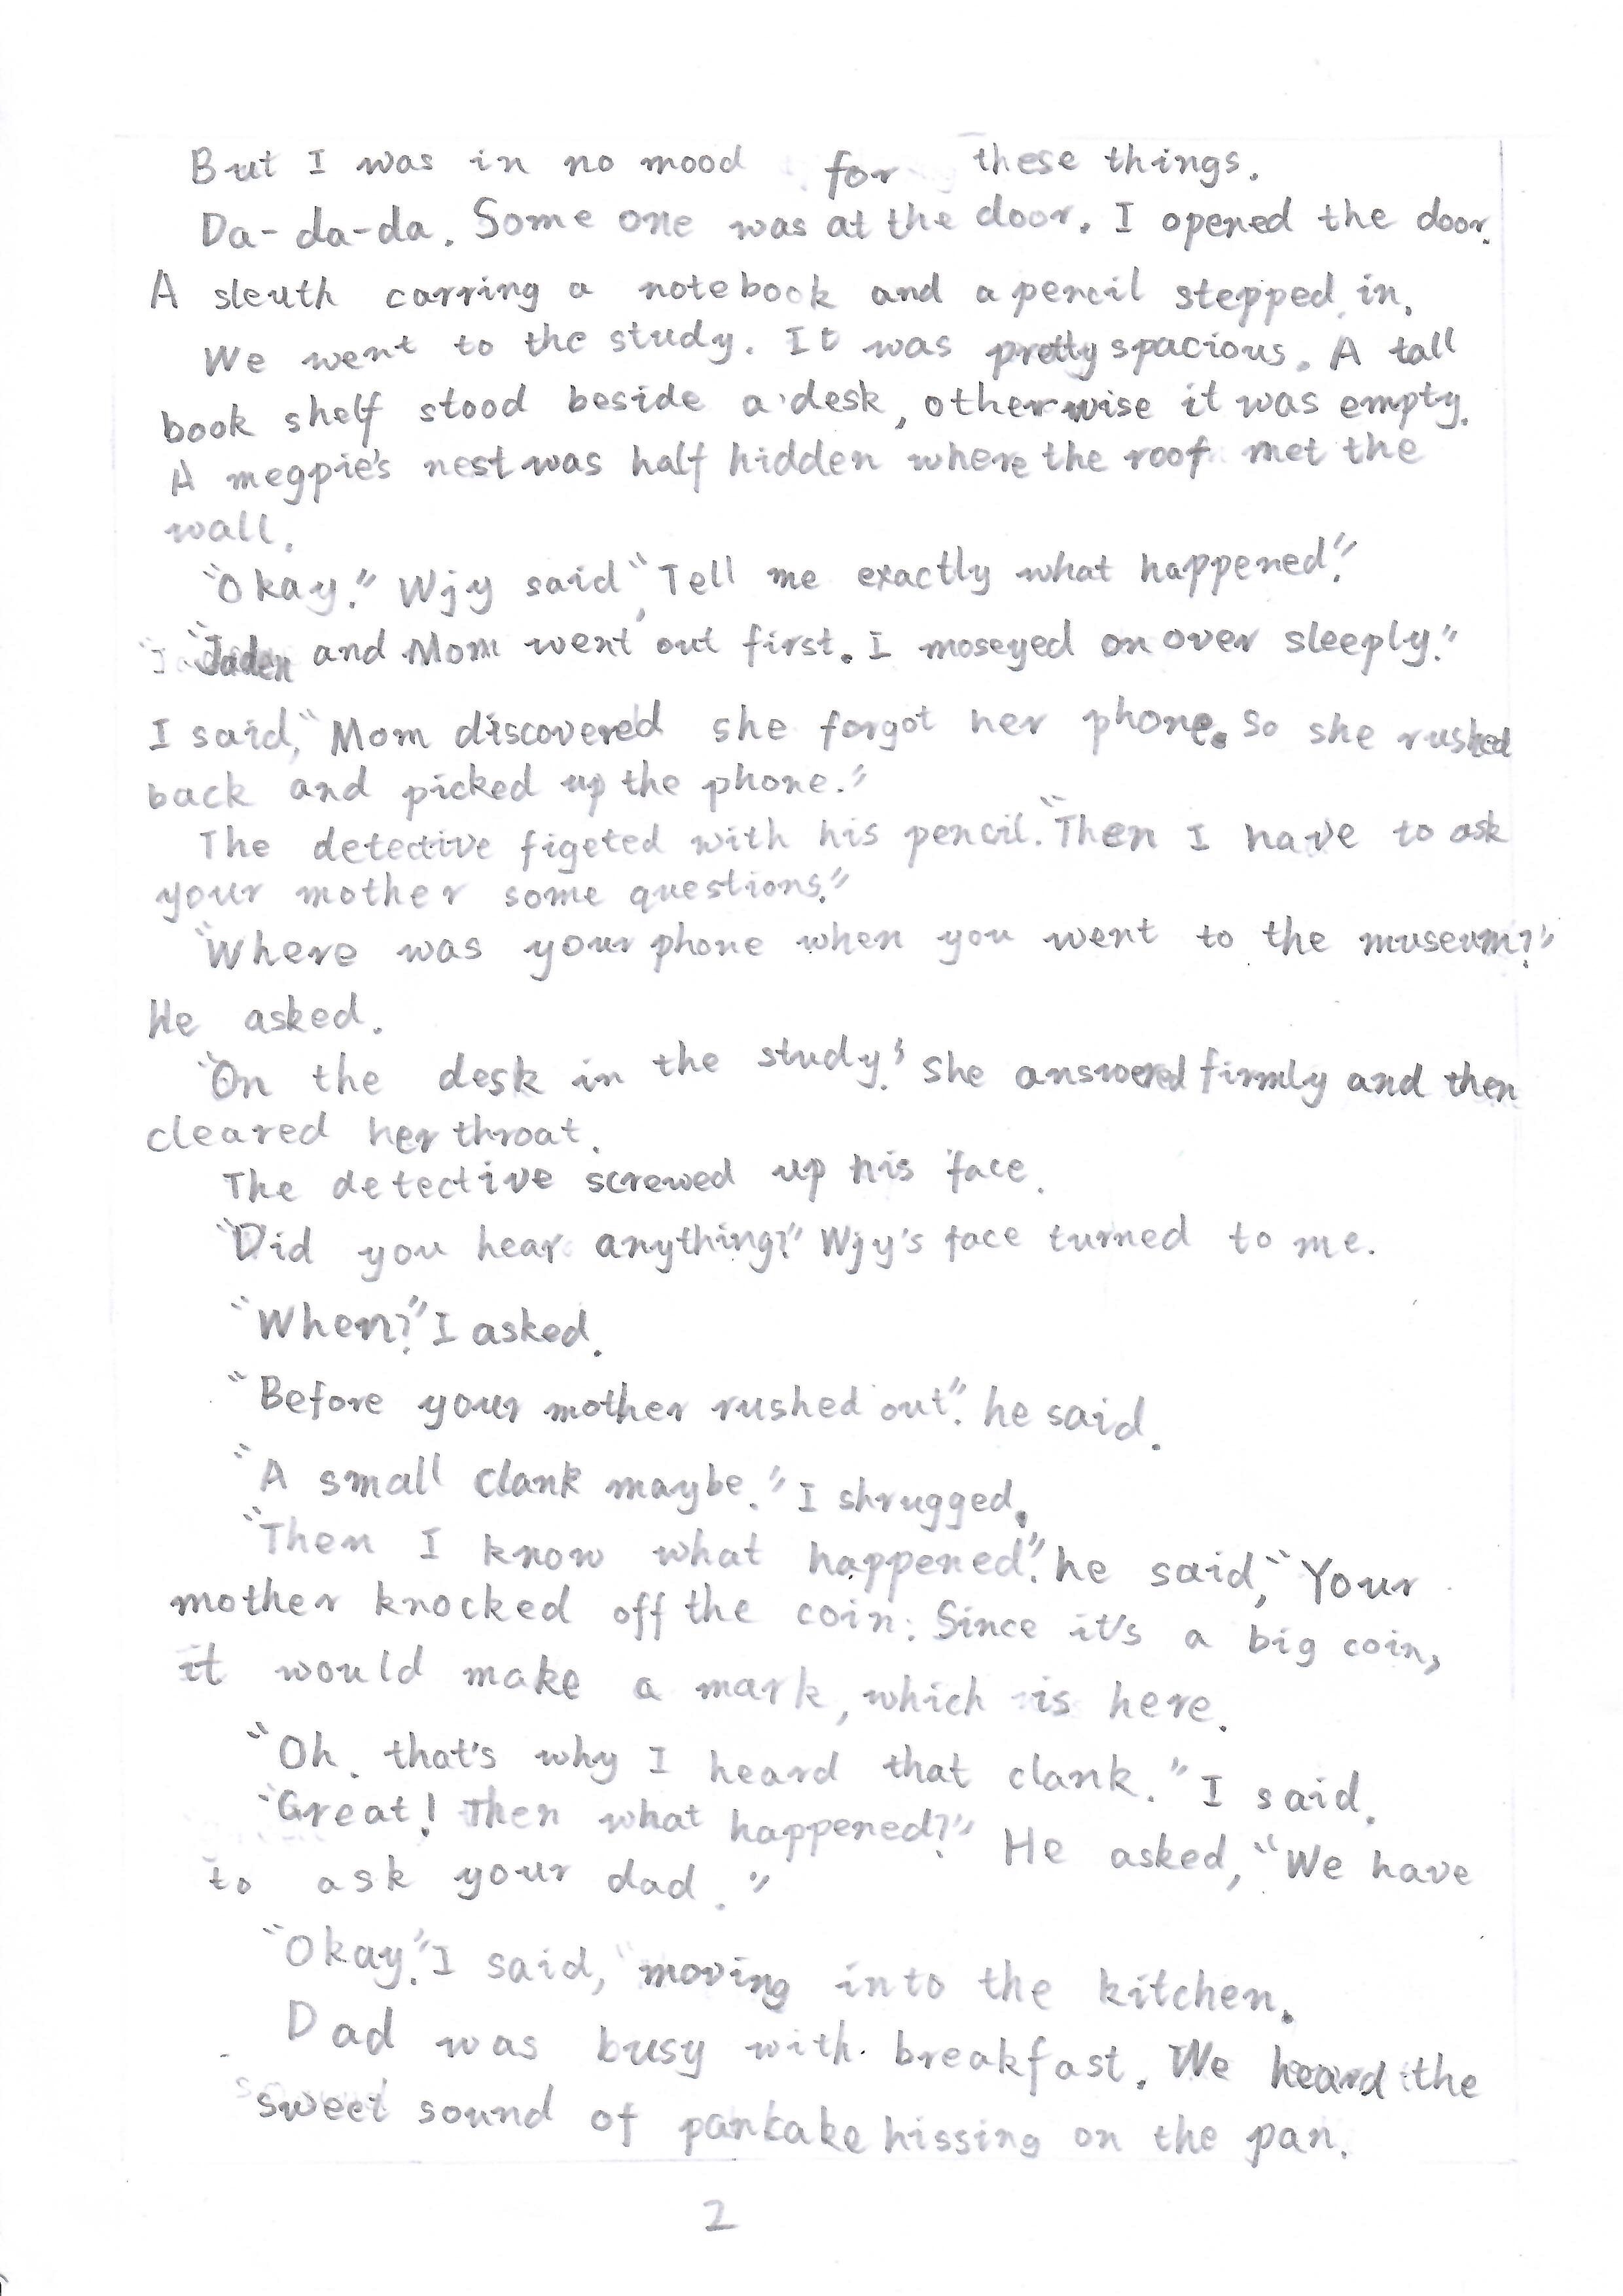 But I was in no mood for these things.
Da-da-da. Some one was at the door. I opened the door.
A sleuth carring a notebook and a pencil stepped in.
We went to the study. It was pretty spacious. A tall
book shelf stood beside a desk, otherwise it was empty.
A megpie's nest was half hidden where the roof met the
wall.
"Okay." Wjy said, "Tell me exactly what happened."
"Jaden and Mom went out first. I moseyed on over sleeply."
I said, "Mom discovered she forgot her phone. So she rushed
back and picked up the phone."
The detective figeted with his pencil. "Then I have to ask
your mother some questions."
"Where was your phone when you went to the museum?"
He asked.
"On the desk in the study." She answered firmly and then
cleared her throat.
The detective screwed up his face.
"Did you hear anything?" Wjy's face turned to me.
"When?" I asked.
"Before your mother rushed out." he said.
"A small clank maybe." I shrugged.
"Then I know what happened." he said, "Your
mother knocked off the coin. Since it's a big coin,
it would make a mark, which is here.
"Oh. that's why I heard that clank." I said.
"Great! Then what happened?" He asked, "We have
to ask your dad."
"Okay." I said, "moving into the kitchen.
Dad was busy with breakfast. We heard the
sweet sound of pankake hissing on the pan.
2